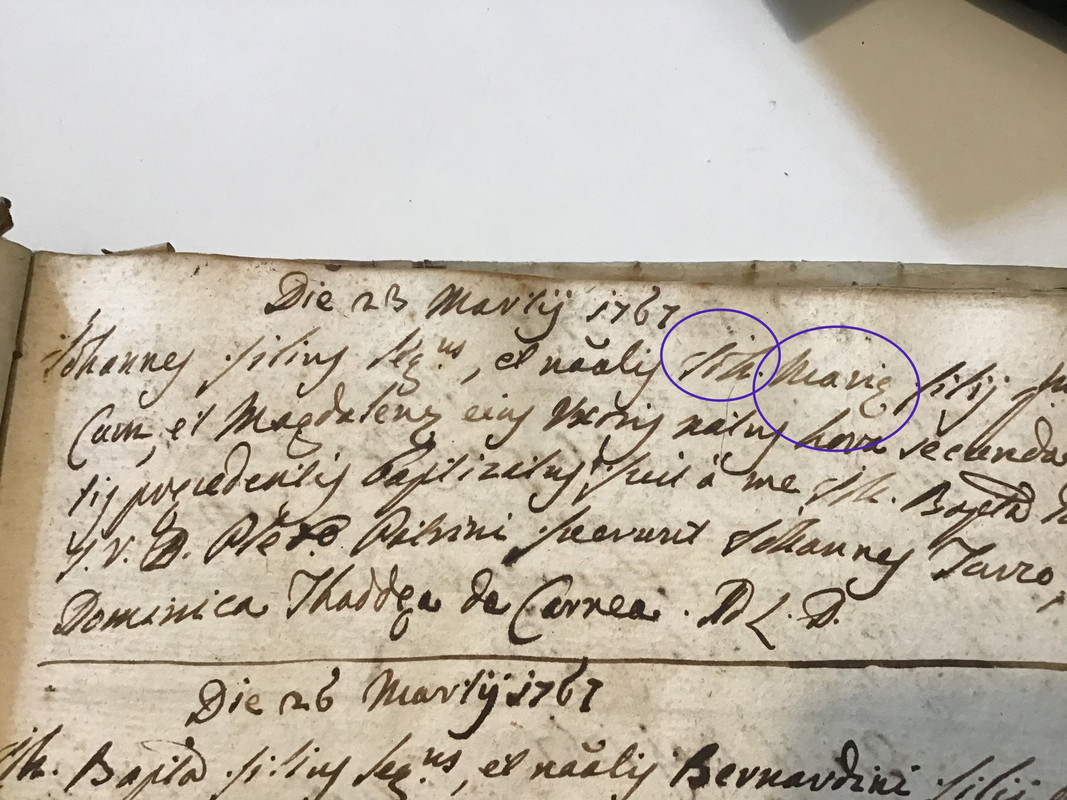 Die 23 Martij 1767
Johannes filius leg.us, et nãalis Joh. Marię filij
Cum, et Magdalenę eius Uxoris natus hora secunda
tis precedentis baptizatus fuit à me Joh. Bapta
Patrini fuerunt Johannes Tarro,
Dominica Thaddęa de Carnea. D. L. D.
Die 26 Martij 1767
Joh. Bapta filius leg.us, et nãalis Bernardini filij